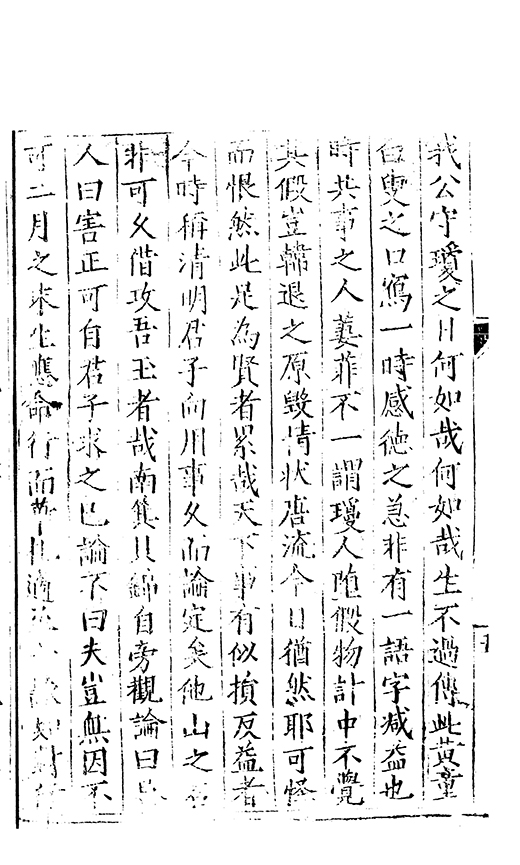 我公守瓊之日何如哉何如哉生不過傳此黃童
白叟之口寫一時感德之忱非有一語字减益也
時共事之人萋菲不一謂瓊人墮假物計中不覺
其假豈韓退之原毀情狀唐流今日猶然耶可怪
而恨然此是為賢者累哉天下事有似損反益者
今時稱清明君子向用事久而論定矣他山之石
非可久借攻吾玉者哉南箕貝錦自旁觀論曰
人曰害正可自君子求之已論不曰夫豈無因不
可二月之來生應命行而